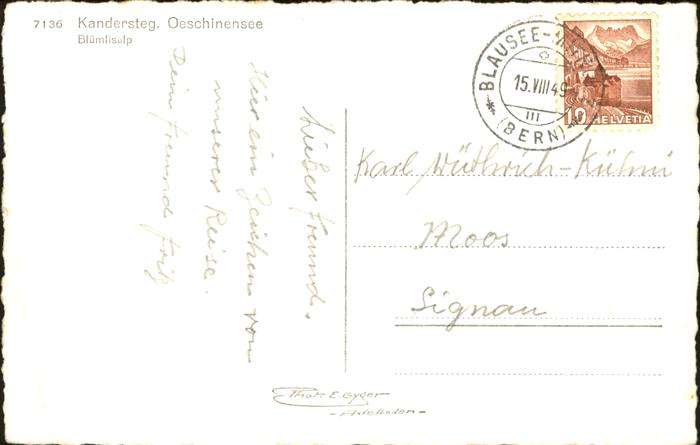 7136 Kandersteg. Oeschinensee
Blümlisalp
BLAUSEE-
15.VIII 49
III
(BERN)
10 HELVETIA
Lieber Freund,
Hier ein Zeichen von
unserer Reise.
Dein Freund Fritz
Karl Wüthrich-Kühni
Moos
Signau
Phot. E. Gyger
- Adelboden -